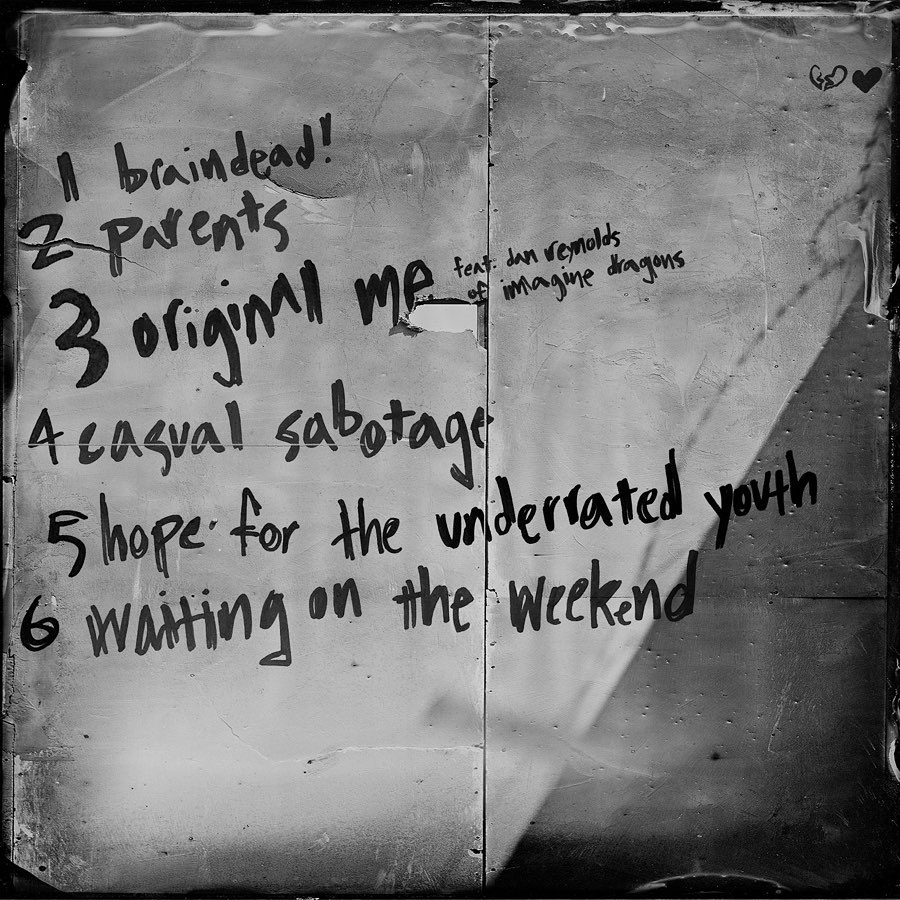 1 braindead!
2 parents
3 original me feat. dan reynolds
of imagine dragons
4 casual sabotage
5 hope for the underrated youth
6 waiting on the weekend